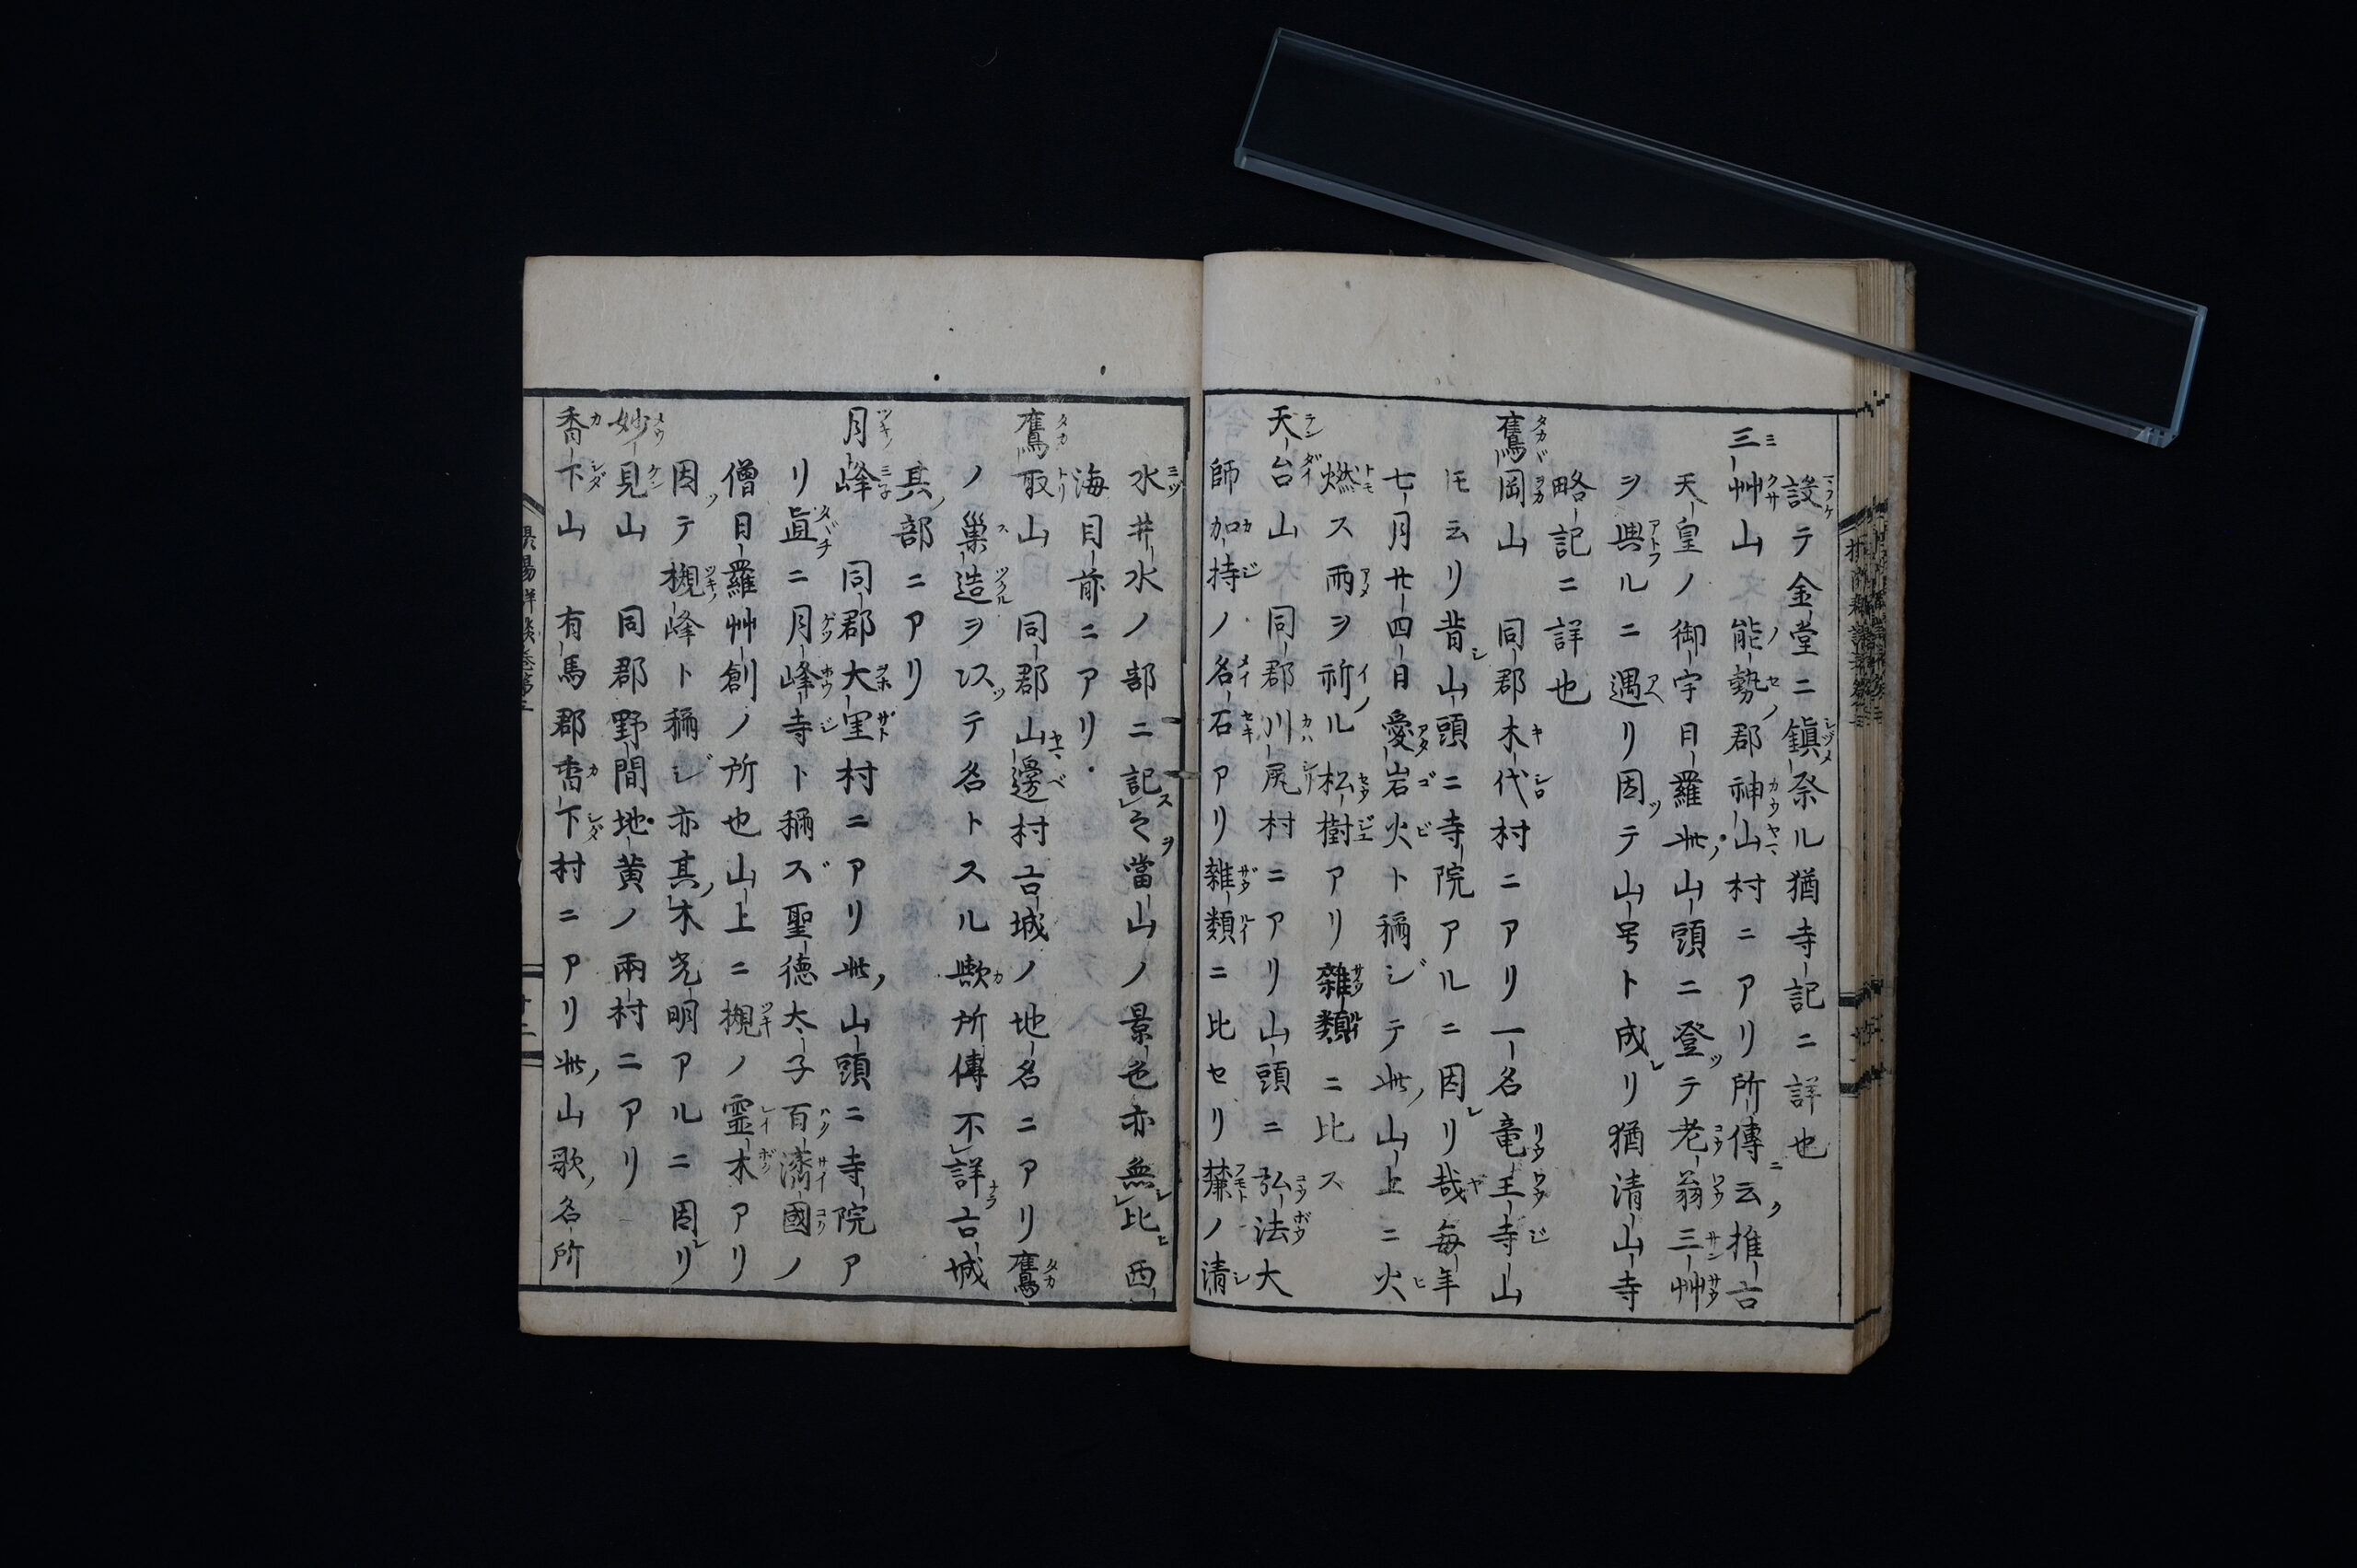 設テ金堂ニ鎭祭ル猶寺記ニ詳也
三艸山 能勢郡神山村ニアリ所傳云推古
天皇ノ御宇日羅此山頭ニ登テ老翁三艸
ヲ與ルニ遇リ因テ山号ト成リ猶清山寺
略記ニ詳也
鷹岡山 同郡木代村ニアリ一名竜王寺山
𪜈云リ昔山頭ニ寺院アルニ因リ哉毎年
七月廿四日愛岩火ト稱ジテ此山上ニ火
燃ス雨ヲ祈ル松樹アリ雜類ニ比ス
天台山 同郡川尻村ニアリ山頭ニ弘法大
師加持ノ名石アリ雜類ニ比セリ麓ノ清
水井水ノ部ニ記之當山ノ景色亦無比西
海目前ニアリ
鷹取山 同郡山邊村古城ノ地名ニアリ鷹
ノ巣造ヲ以テ名トスル歟所傳不詳古城
其部ニアリ
月峰 同郡大里村ニアリ此山頭ニ寺院ア
リ直ニ月峰寺ト稱ズ聖徳太子百濟國ノ
僧日羅艸創ノ所也山上ニ槻ノ霊木アリ
因テ槻峰ト稱ジ亦其木光明アルニ因リ
妙見山 同郡野間地黄ノ兩村ニアリ
香下山 有馬郡香下村ニアリ此山歌名所